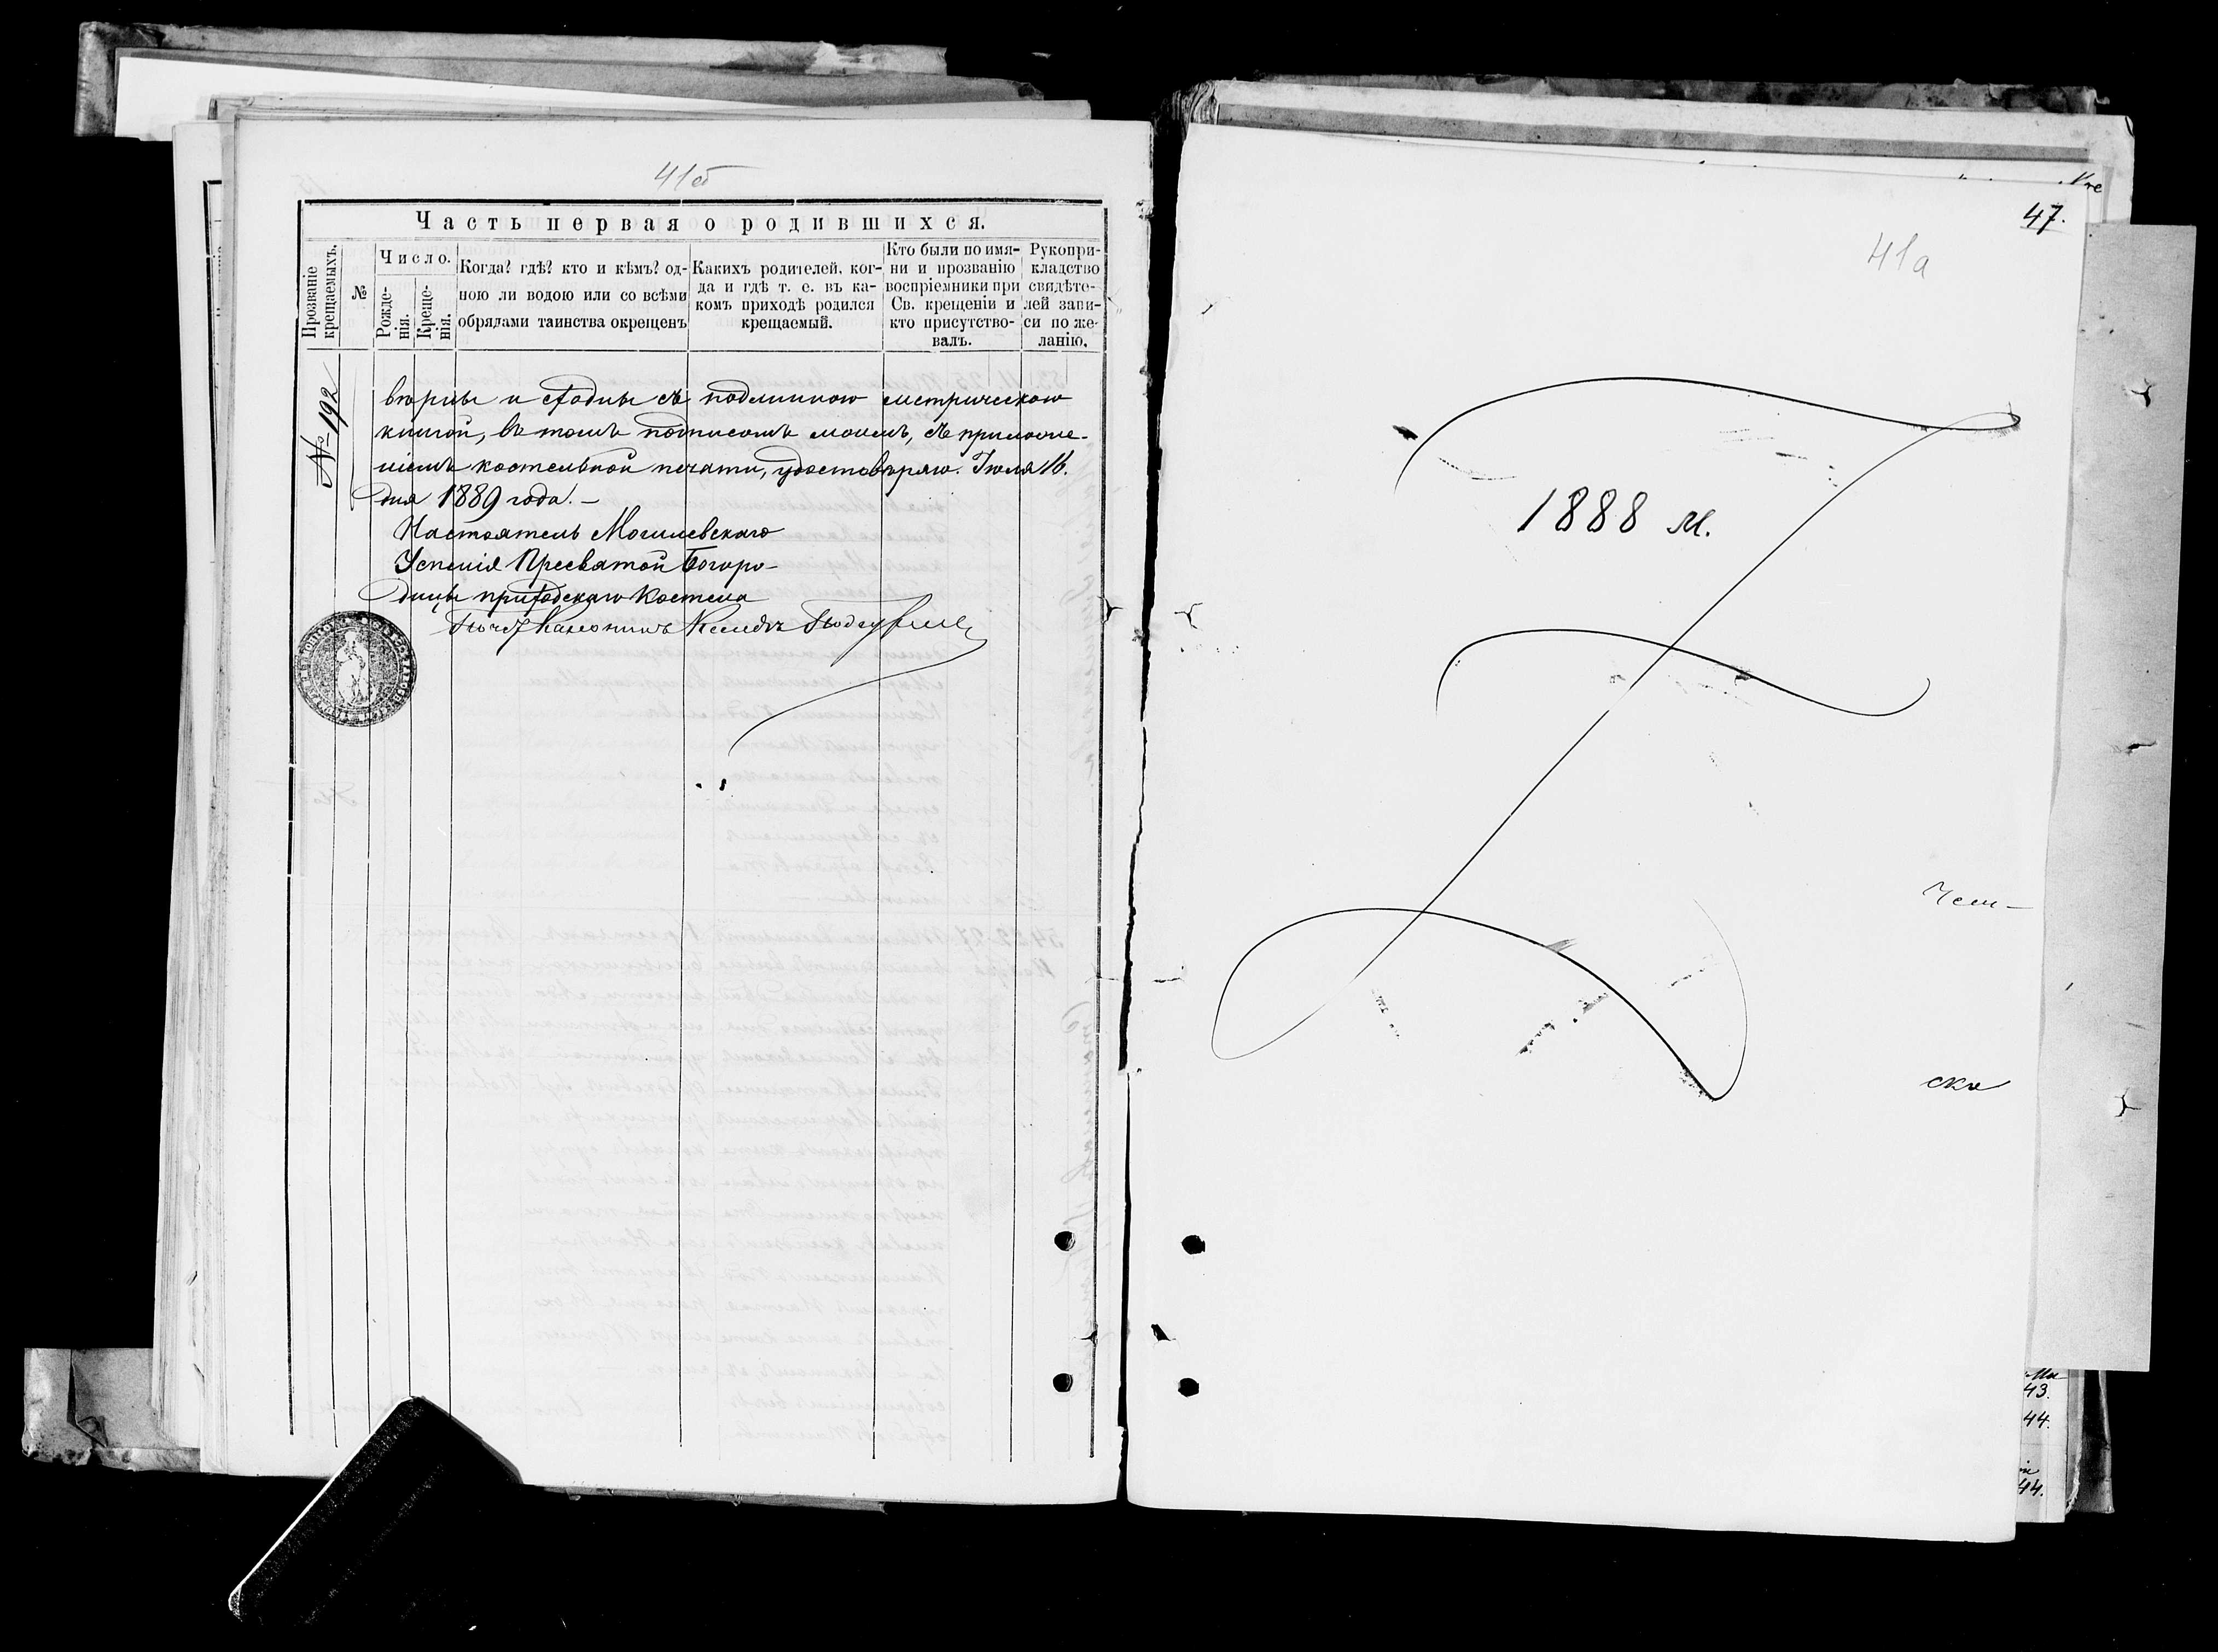 41об
Часть первая о родившихся.
Прозваніе крещаемыхъ.
№
Число.
Рожде-
нія.
Креще-
нія.
Когда? гдѣ? кто и кѣмъ? од-
ною ли водою или со всѣми
обрядами таинства окрещенъ
Какихъ родителей, ког-
да и гдѣ т. е. въ ка-
комъ приходѣ родился
крещаемый.
Кто были по имя-
ни и прозванію
воспріемники при
Св. крещеніи и
кто присутство-
валъ.
Рукопри-
кладство
свидѣте-
лей запи-
си по же-
ланію.
№ 192
вѣрны и сходны съ подлинною метрическою
книгой, въ томъ подписомъ моимъ, съ приложе-
ніемъ костельной печати, удостовѣряю. Іюля 16.
дня 1889 года. –
Настоятель Могилевскаго
Успенія Пресвятой Богоро-
дицы приходскаго Костела
Каноникъ Ксендзъ
47.
41а
1888 м.
ска
43.
44.
44.